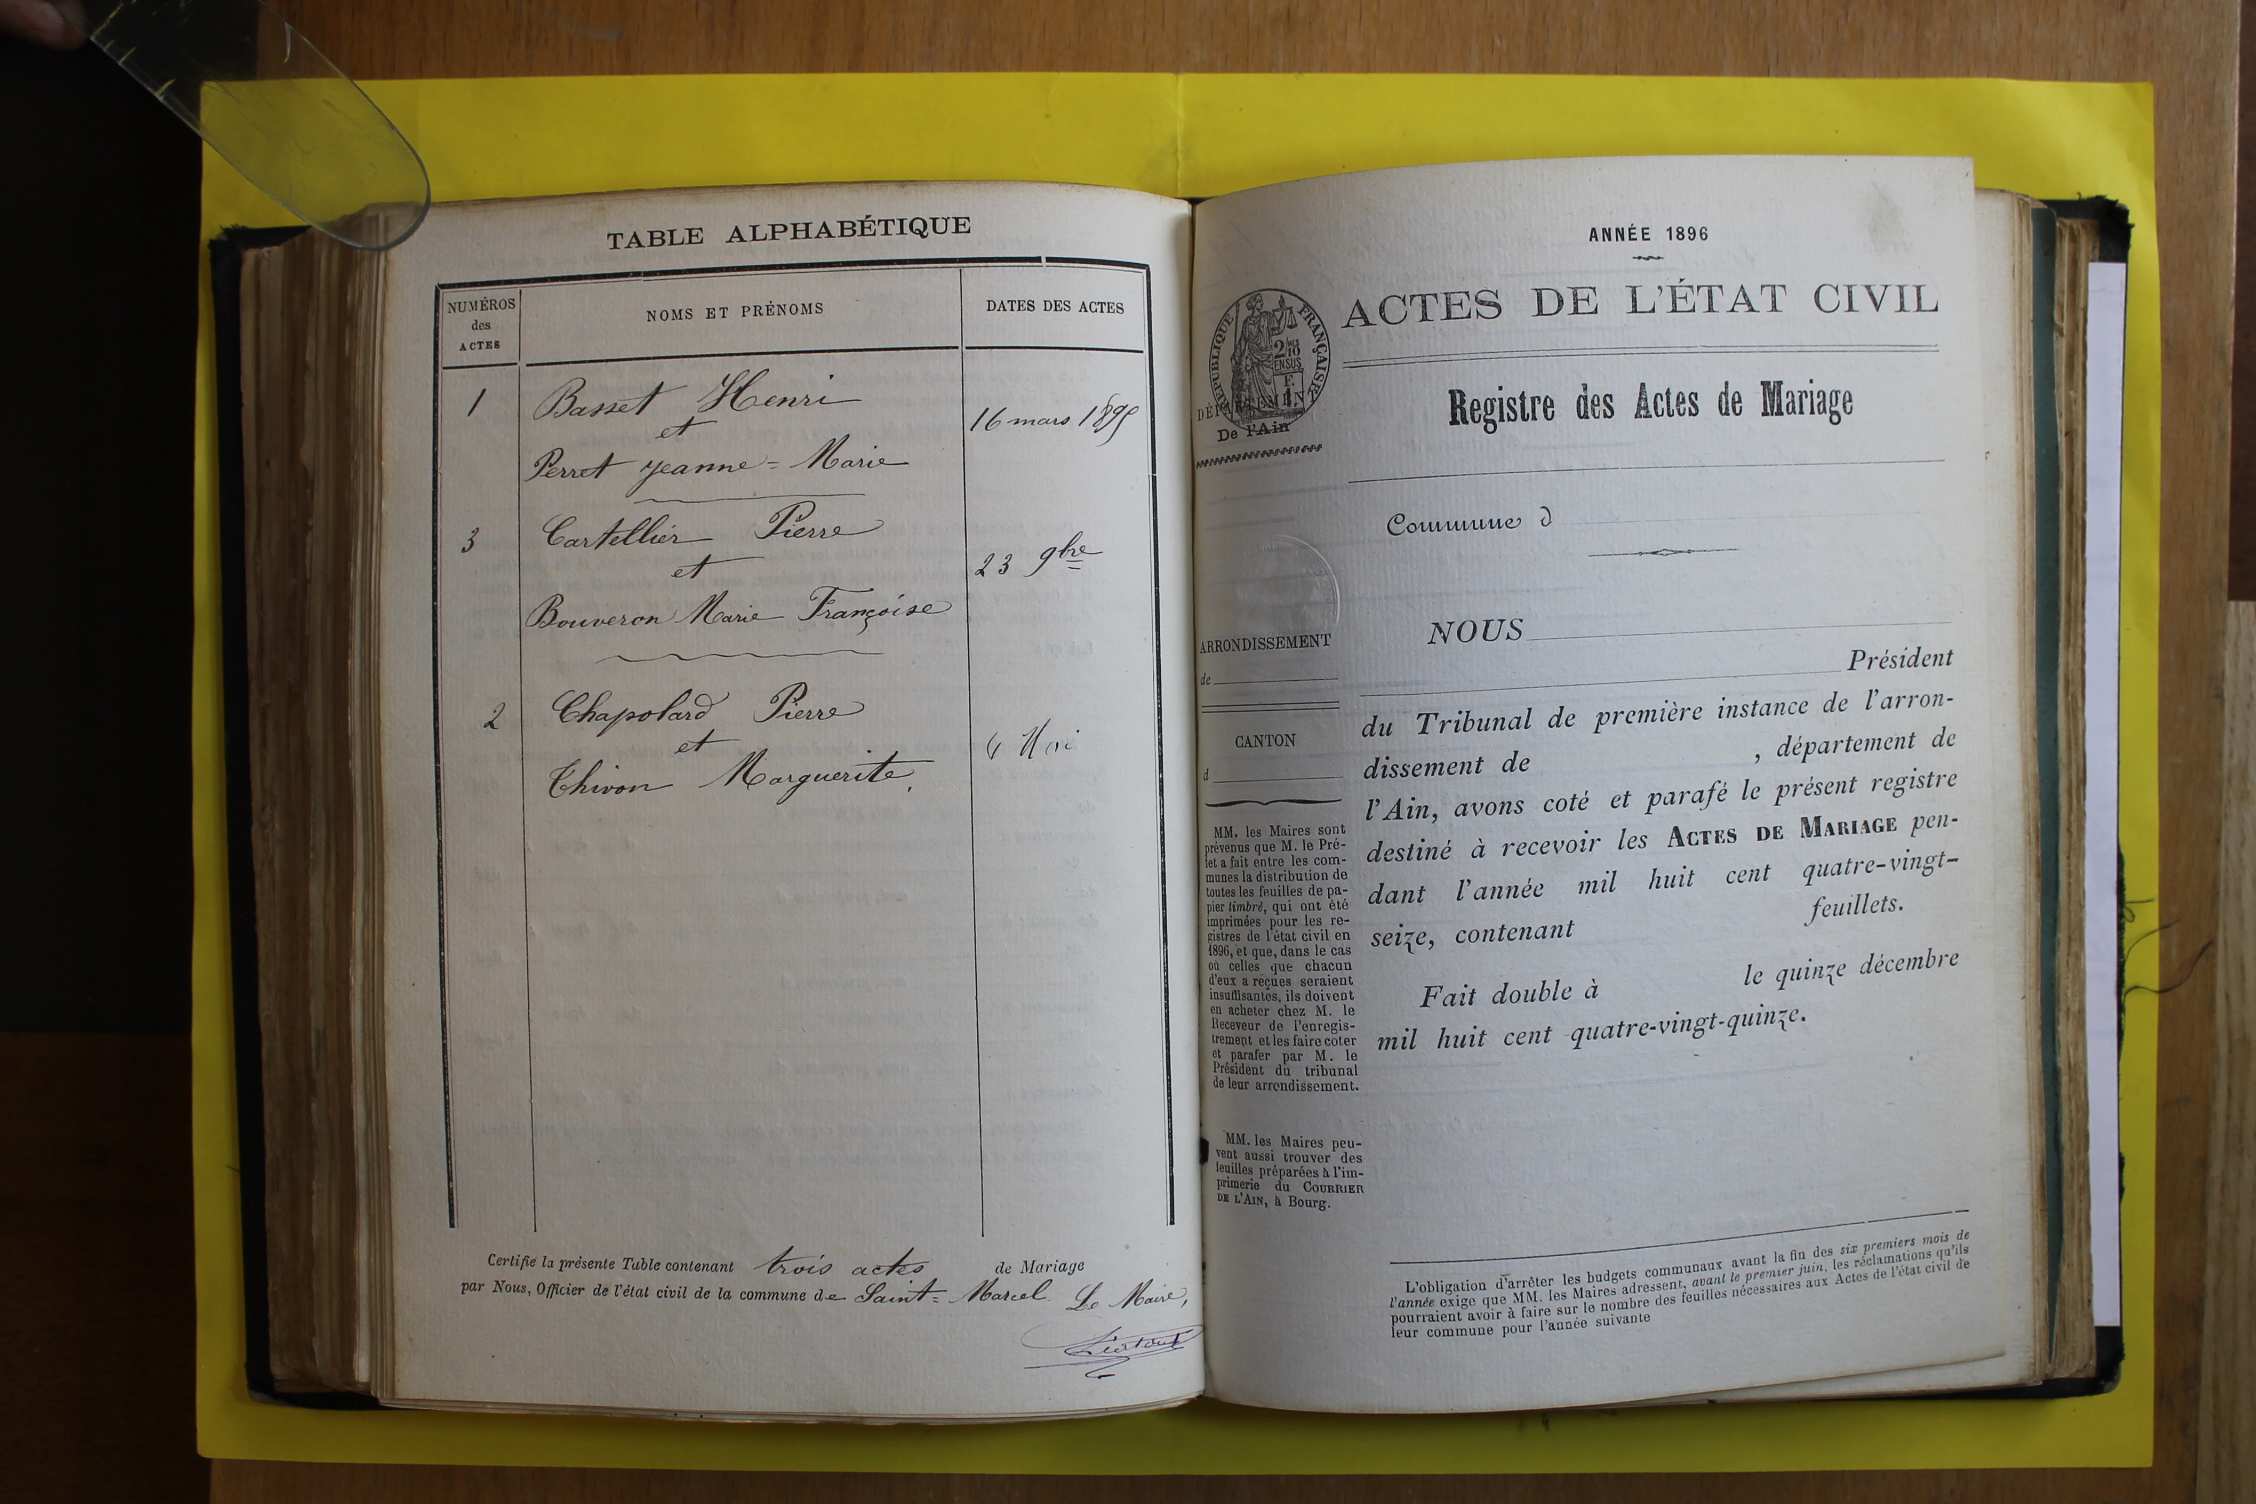 TABLE ALPHABÉTIQUE
NUMÉROS
des
ACTES
NOMS ET PRÉNOMS
DATES DES ACTES
1
Basset Henri
et
Perret Jeanne=Marie
16 mars 1895
3
Cartellier Pierre
et
Bouveron Marie Françoise
23 9bre
2
Chapolard Pierre
et
Thivon Marguerite.
Certifie la présente Table contenant trois actes de Mariage
par Nous, Officier de l'état civil de la commune de Saint=Marcel Le Maire,
ANNÉE 1896
ACTES DE L'ÉTAT CIVIL
RÉPUBLIQUE FRANÇAISE
2/10
EN SUS
F.
1
DÉPARTEMENT
De l'Ain
Registre des Actes de Mariage
Commune d
ARRONDISSEMENT
de
CANTON
d
MM. les Maires sont
prévenus que M. le Pré-
fet a fait entre les com-
munes la distribution de
toutes les feuilles de pa-
pier timbré, qui ont été
imprimées pour les re-
gistres de l'état civil en
1896, et que, dans le cas
où celles que chacun
d'eux a reçues seraient
insuffisantes, ils doivent
en acheter chez M. le
Receveur de l'enregis-
trement et les faire coter
et parafer par M. le
Président du tribunal
de leur arrondissement.
MM. les Maires peu-
vent aussi trouver des
feuilles préparées à l'im-
primerie du COURRIER
DE L'AIN, à Bourg.
NOUS
Président
du Tribunal de première instance de l'arron-
dissement de , département de
l'Ain, avons coté et parafé le présent registre
destiné à recevoir les ACTES DE MARIAGE pen-
dant l'année mil huit cent quatre-vingt-
seize, contenant feuillets.
Fait double à le quinze décembre
mil huit cent quatre-vingt-quinze.
L'obligation d'arrêter les budgets communaux avant la fin des six premiers mois de
l'année exige que MM. les Maires adressent, avant le premier juin, les réclamations qu'ils
pourraient avoir à faire sur le nombre des feuilles nécessaires aux Actes de l'état civil de
leur commune pour l'année suivante